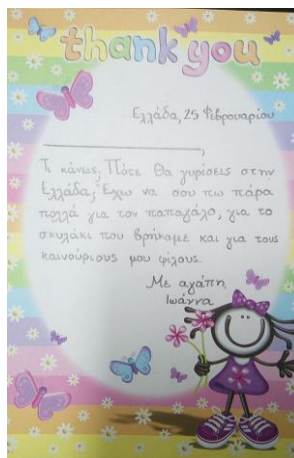 thank you
Ελλάδα, 25 Φεβρουαρίου
,
Τι κάνεις; Πότε θα γυρίσεις στην
Ελλάδα; Έχω να σου πω πάρα
πολλά για τον παπαγάλο, για το
σκυλάκι που βρήκαμε και για τους
καινούριους μου φίλους.
Με αγάπη,
Ιωάννα